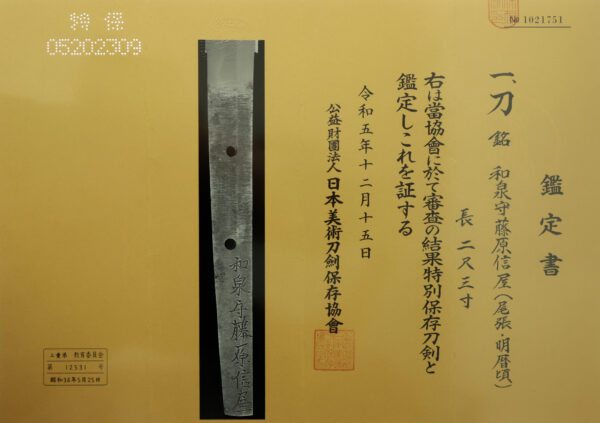 特保
05202309
№ 1021751
鑑定書
一、刀 銘 和泉守藤原信屋(尾張・明暦頃)
長 二尺三寸
右は當協會に於て審査の結果特別保存刀剣と
鑑定しこれを証する
令和五年十二月十五日
公益財團法人 日本美術刀劍保存協會
和泉守藤原信屋
三重県 教育委員会
第 12531 号
昭和36年5月25日